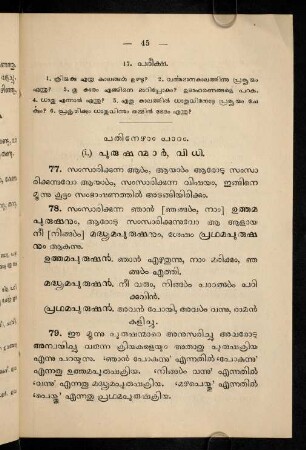 — 45 —
17. പരീക്ഷ.
1. ക്രിയക്കു എത്ര കാലങ്ങൾ ഉണ്ടു? 2. വൎത്തമാനകാലത്തിന്നു പ്രത്യയം
എന്തു? 3. ഉ കാരം എങ്ങിനെ മാറിപ്പോകും? ഉദാഹരണങ്ങളെ പറക.
4. ധാതു എന്നാൽ എന്തു? 5. ഏതു കാലത്തിൽ ധാതുവിനോടു പ്രത്യയം ചേ
ൎക്കും? 6. പ്രകൃതിക്കും ധാതുവിന്നും തമ്മിൽ ഭേദം എന്തു?
പതിനേഴാം പാഠം.
(i.) പുരുഷന്മാർ, വിധി.
77. സംസാരിക്കുന്ന ആൾ, ആയാൾ ആരോടു സംസാ
രിക്കുന്നുവോ ആയാൾ, സംസാരിക്കുന്ന വിഷയം, ഇങ്ങിനെ
മൂന്നു കൂട്ടം സംഭാഷണത്തിൽ അടങ്ങിയിരിക്കും.
78. സംസാരിക്കുന്ന ഞാൻ [ഞങ്ങൾ, നാം] ഉത്തമ
പുരുഷനും, ആരോടു സംസാരിക്കുന്നുവോ ആ ആളായ
നീ [നിങ്ങൾ] മദ്ധ്യമപുരുഷനും, ശേഷം പ്രഥമപുരുഷ
നും ആകുന്നു.
ഉത്തമപുരുഷൻ. ഞാൻ എഴുതുന്നു, നാം മരിക്കും, ഞ
ങ്ങൾ എത്തി.
മദ്ധ്യമപുരുഷൻ. നീ വരും, നിങ്ങൾ പാഠങ്ങൾ പഠി
ക്കുവിൻ.
പ്രഥമപുരുഷൻ. അവൻ പോയി, അവൾ വന്നു, രാമൻ
കളിച്ചു.
79. ഈ മൂന്നു പുരുഷന്മാരെ അനുസരിച്ചു അവരോടു
അന്വയിച്ചു വരുന്ന ക്രിയകളെയും അതാതു പുരുഷക്രിയ
എന്നു പറയുന്നു. 'ഞാൻ പോകുന്നു' എന്നതിൽ 'പോകുന്നു'
എന്നതു ഉത്തമപുരുഷക്രിയ. 'നിങ്ങൾ വന്നു' എന്നതിൽ
'വന്നു' എന്നതു മദ്ധ്യമപുരുഷക്രിയ. 'മഴപെയ്തു' എന്നതിൽ
'പെയ്തു' എന്നതു പ്രഥമപുരുഷക്രിയ.